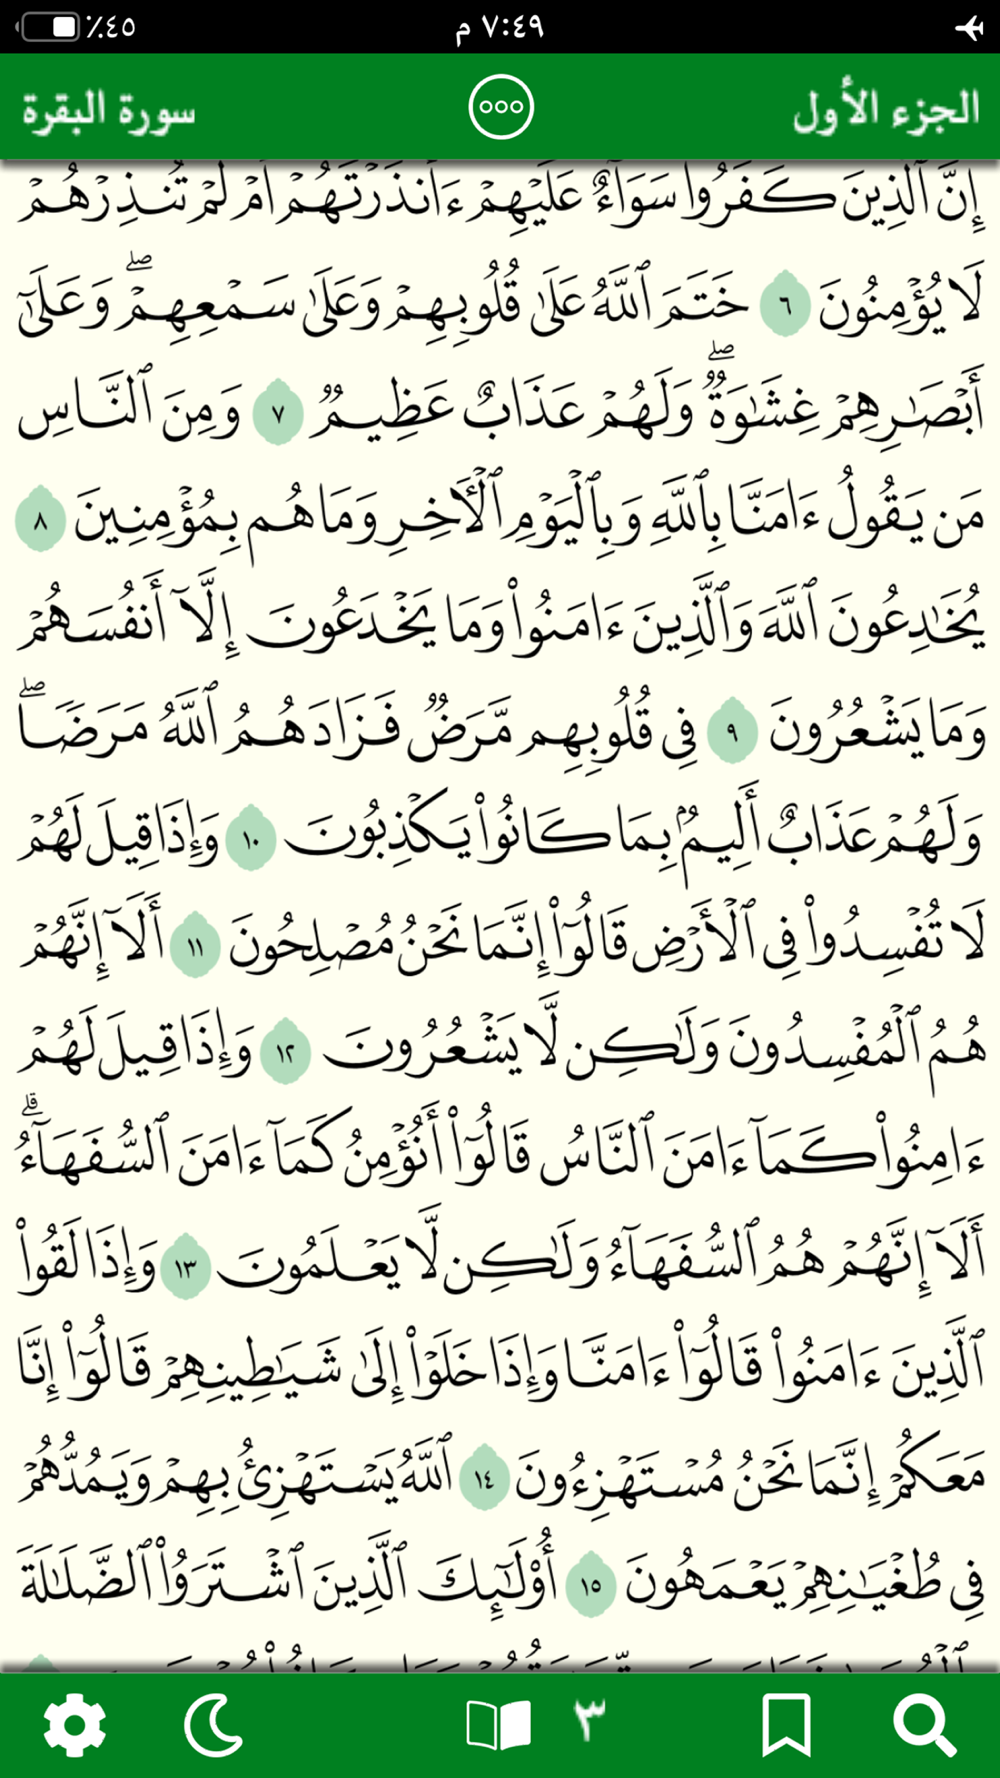 ٧:٤٩ م
٪٤٥
الجزء الأول
سورة البقرة
إِنَّ ٱلَّذِينَ كَفَرُوا۟ سَوَآءٌ عَلَيْهِمْ ءَأَنذَرْتَهُمْ أَمْ لَمْ تُنذِرْهُمْ
لَا يُؤْمِنُونَ ٦ خَتَمَ ٱللَّهُ عَلَىٰ قُلُوبِهِمْ وَعَلَىٰ سَمْعِهِمْ ۖ وَعَلَىٰٓ
أَبْصَـٰرِهِمْ غِشَـٰوَةٌ ۖ وَلَهُمْ عَذَابٌ عَظِيمٌ ٧ وَمِنَ ٱلنَّاسِ
مَن يَقُولُ ءَامَنَّا بِٱللَّهِ وَبِٱلْيَوْمِ ٱلْـَٔاخِرِ وَمَا هُم بِمُؤْمِنِينَ ٨
يُخَـٰدِعُونَ ٱللَّهَ وَٱلَّذِينَ ءَامَنُوا۟ وَمَا يَخْدَعُونَ إِلَّآ أَنفُسَهُمْ
وَمَا يَشْعُرُونَ ٩ فِى قُلُوبِهِم مَّرَضٌ فَزَادَهُمُ ٱللَّهُ مَرَضًا ۖ
وَلَهُمْ عَذَابٌ أَلِيمٌۢ بِمَا كَانُوا۟ يَكْذِبُونَ ١٠ وَإِذَا قِيلَ لَهُمْ
لَا تُفْسِدُوا۟ فِى ٱلْأَرْضِ قَالُوٓا۟ إِنَّمَا نَحْنُ مُصْلِحُونَ ١١ أَلَآ إِنَّهُمْ
هُمُ ٱلْمُفْسِدُونَ وَلَـٰكِن لَّا يَشْعُرُونَ ١٢ وَإِذَا قِيلَ لَهُمْ
ءَامِنُوا۟ كَمَآ ءَامَنَ ٱلنَّاسُ قَالُوٓا۟ أَنُؤْمِنُ كَمَآ ءَامَنَ ٱلسُّفَهَآءُ ۗ
أَلَآ إِنَّهُمْ هُمُ ٱلسُّفَهَآءُ وَلَـٰكِن لَّا يَعْلَمُونَ ١٣ وَإِذَا لَقُوا۟
ٱلَّذِينَ ءَامَنُوا۟ قَالُوٓا۟ ءَامَنَّا وَإِذَا خَلَوْا۟ إِلَىٰ شَيَـٰطِينِهِمْ قَالُوٓا۟ إِنَّا
مَعَكُمْ إِنَّمَا نَحْنُ مُسْتَهْزِءُونَ ١٤ ٱللَّهُ يَسْتَهْزِئُ بِهِمْ وَيَمُدُّهُمْ
فِى طُغْيَـٰنِهِمْ يَعْمَهُونَ ١٥ أُو۟لَـٰٓئِكَ ٱلَّذِينَ ٱشْتَرَوُا۟ ٱلضَّلَـٰلَةَ
٣